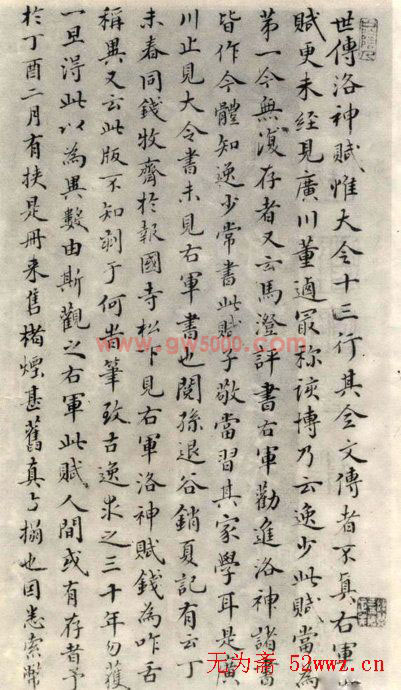 世傳洛神賦惟大令十三行其全文傳者不真右軍
賦更未經見廣川董逌最称該博乃云逸少此賦當為
第一今無復存者又云馬澄評書右軍勸進洛神諸書
皆作今體知逸少常書此賦子敬當習其家學耳是廣
川止見大令書未見右軍書也閱孫退谷銷夏記有云丁
未春同錢牧齋於報國寺松下見右軍洛神賦錢為咋舌
稱異又云此版不知刻于何尚筆致古逸求之三十年勿獲
一旦得此以為異數由斯觀之右軍此賦人間或有存者予
於丁酉二月有挾是冊来售楮煙甚舊真与搨也因悉索
www.gw5000.com
无为斋 52wwz.cn